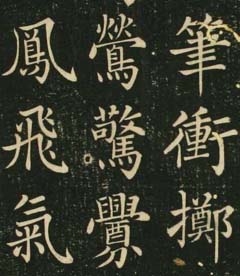 筆衝擲
鶯驚釁
鳳飛氣